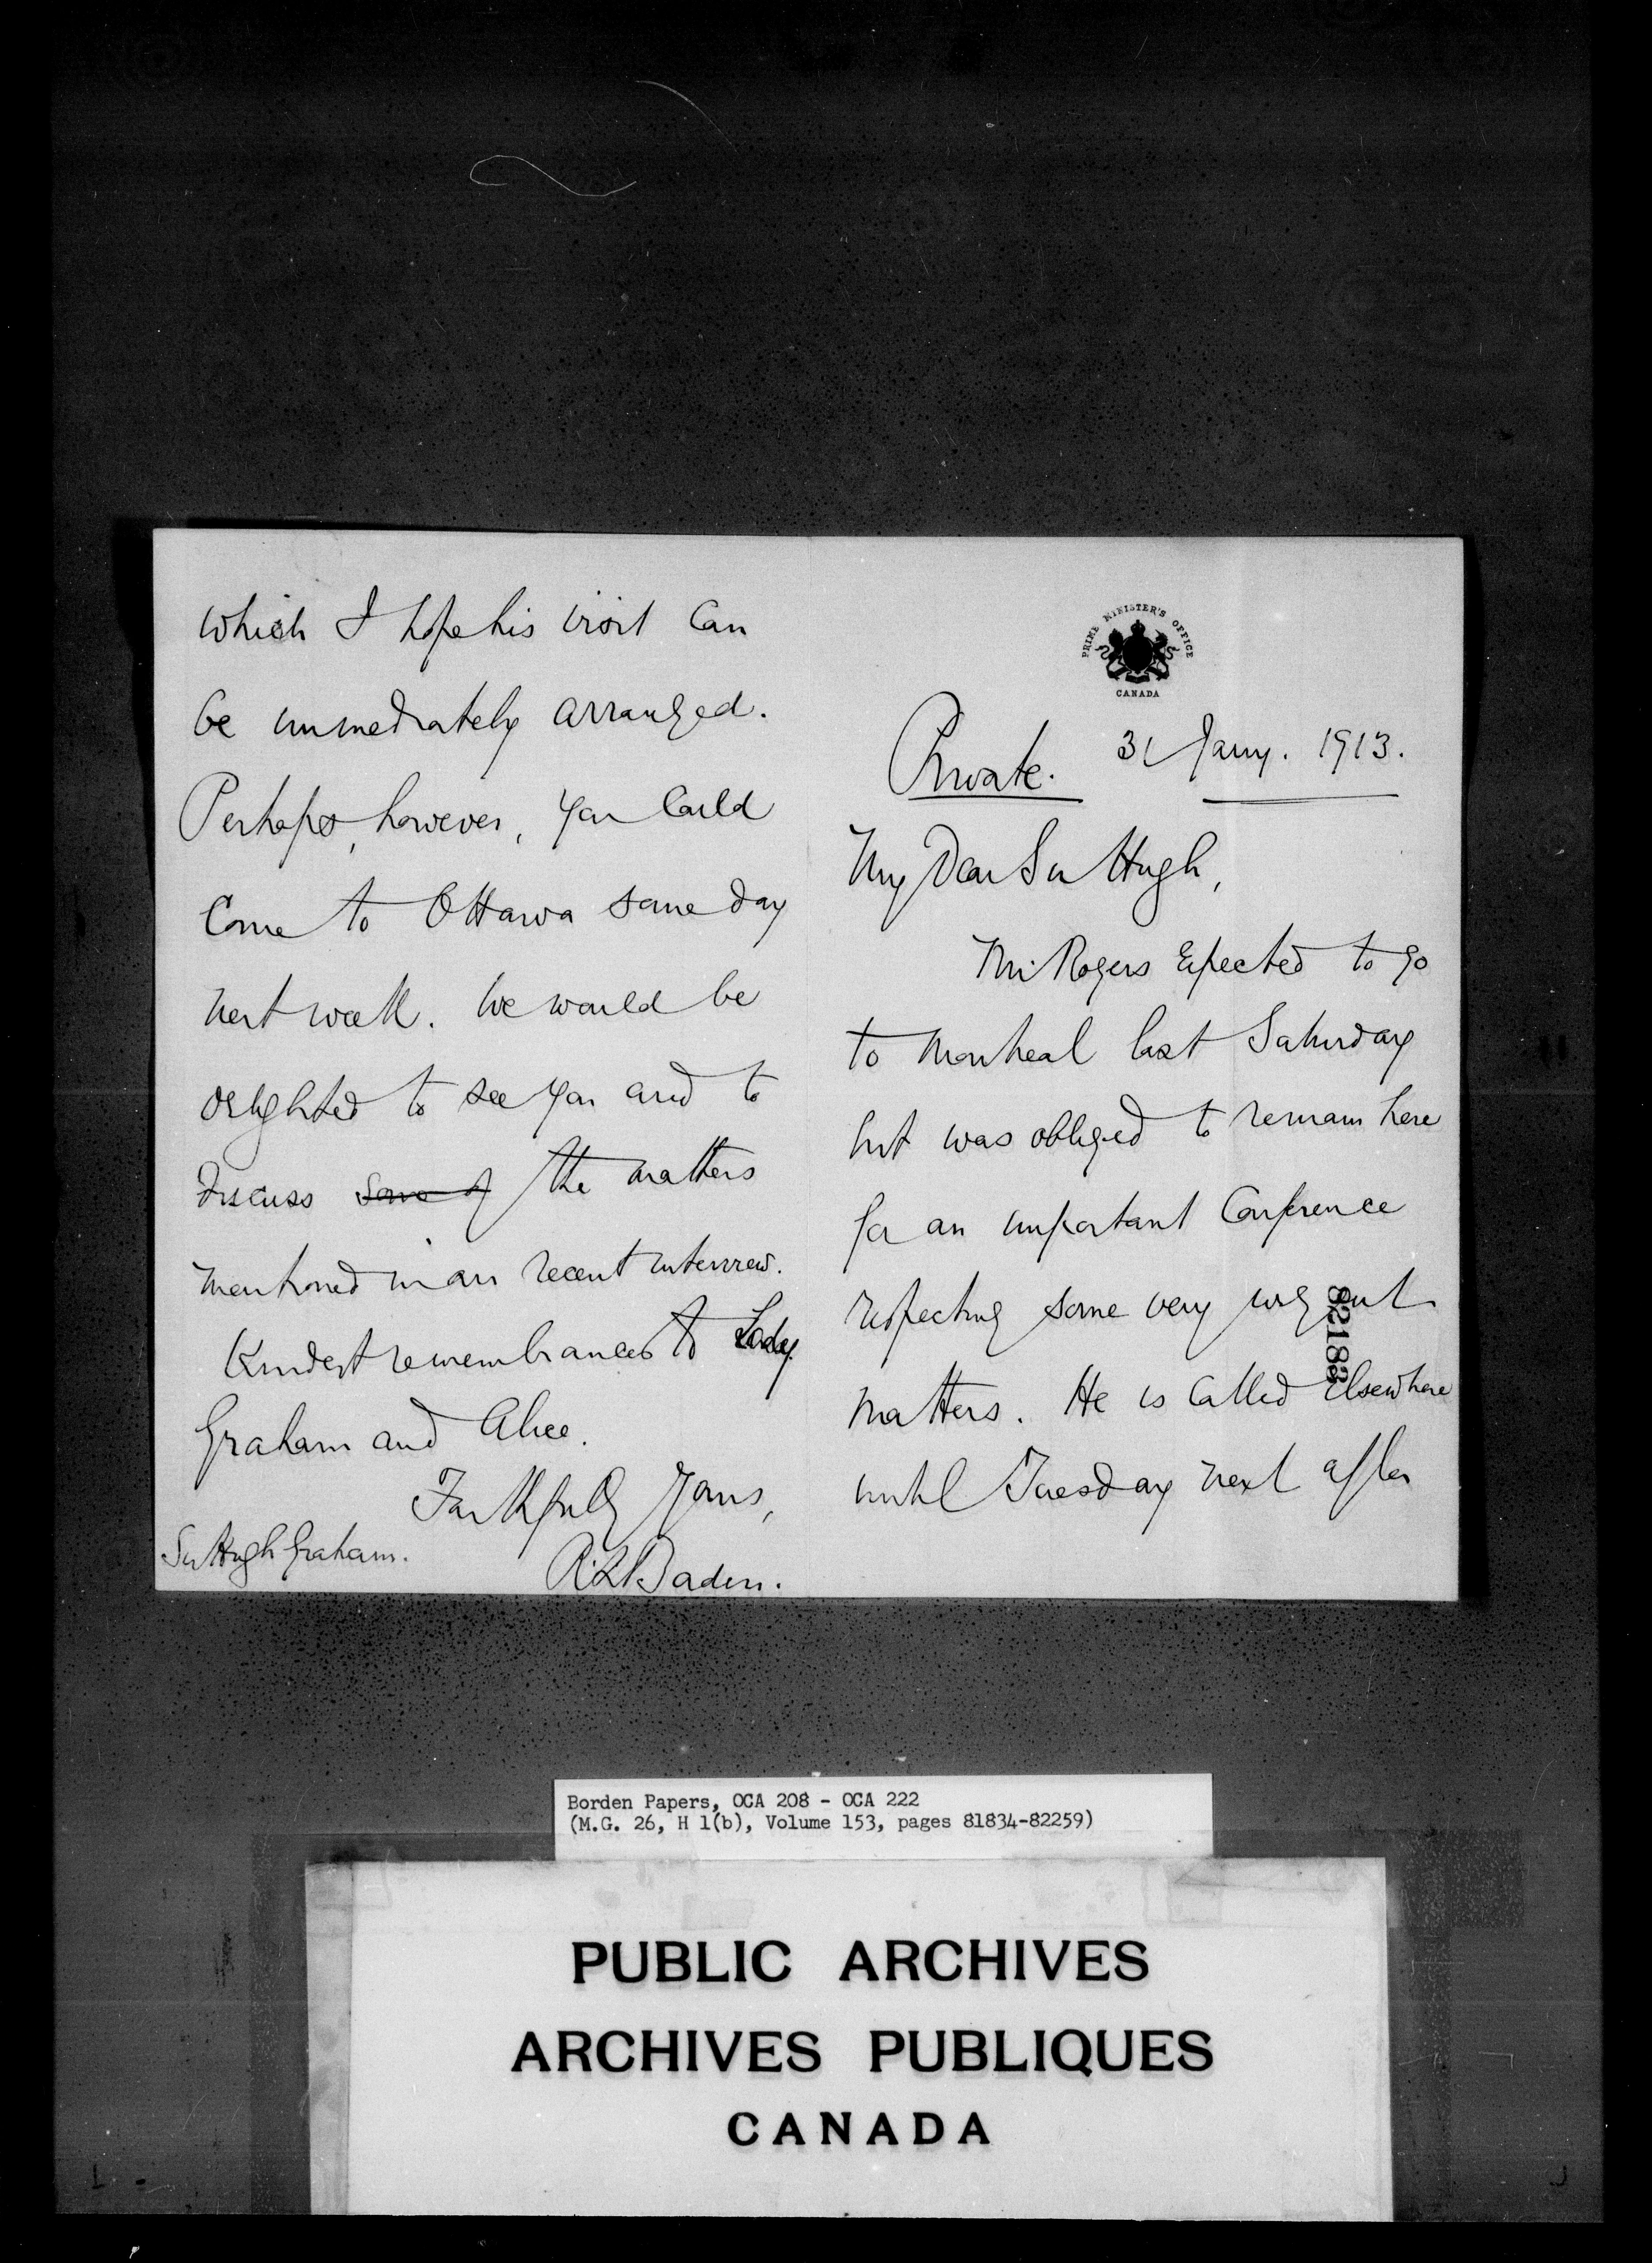 PRIME MINISTER'S OFFICE
CANADA
Private. 31 Jany. 1913.
My Dear Sir Hugh,
Mr Rogers expected to go
to Montreal last Saturday
but was obliged to remain here
for an important Conference
respecting some very urgent
matters. He is called elsewhere
until Tuesday next after
82183
which I hope his visit can
be immediately arranged.
Perhaps, however, you could
come to Ottawa some day
next week. We would be
delighted to see you and to
discuss some of the matters
mentioned in our recent interview.
Kindest remembrances to Lady
Graham and Alice.
Faithfully Yours,
R.L. Borden.
Sir Hugh Graham.
Borden Papers, OCA 208 - OCA 222
(M.G. 26, H 1(b), Volume 153, pages 81834-82259)
PUBLIC ARCHIVES
ARCHIVES PUBLIQUES
CANADA